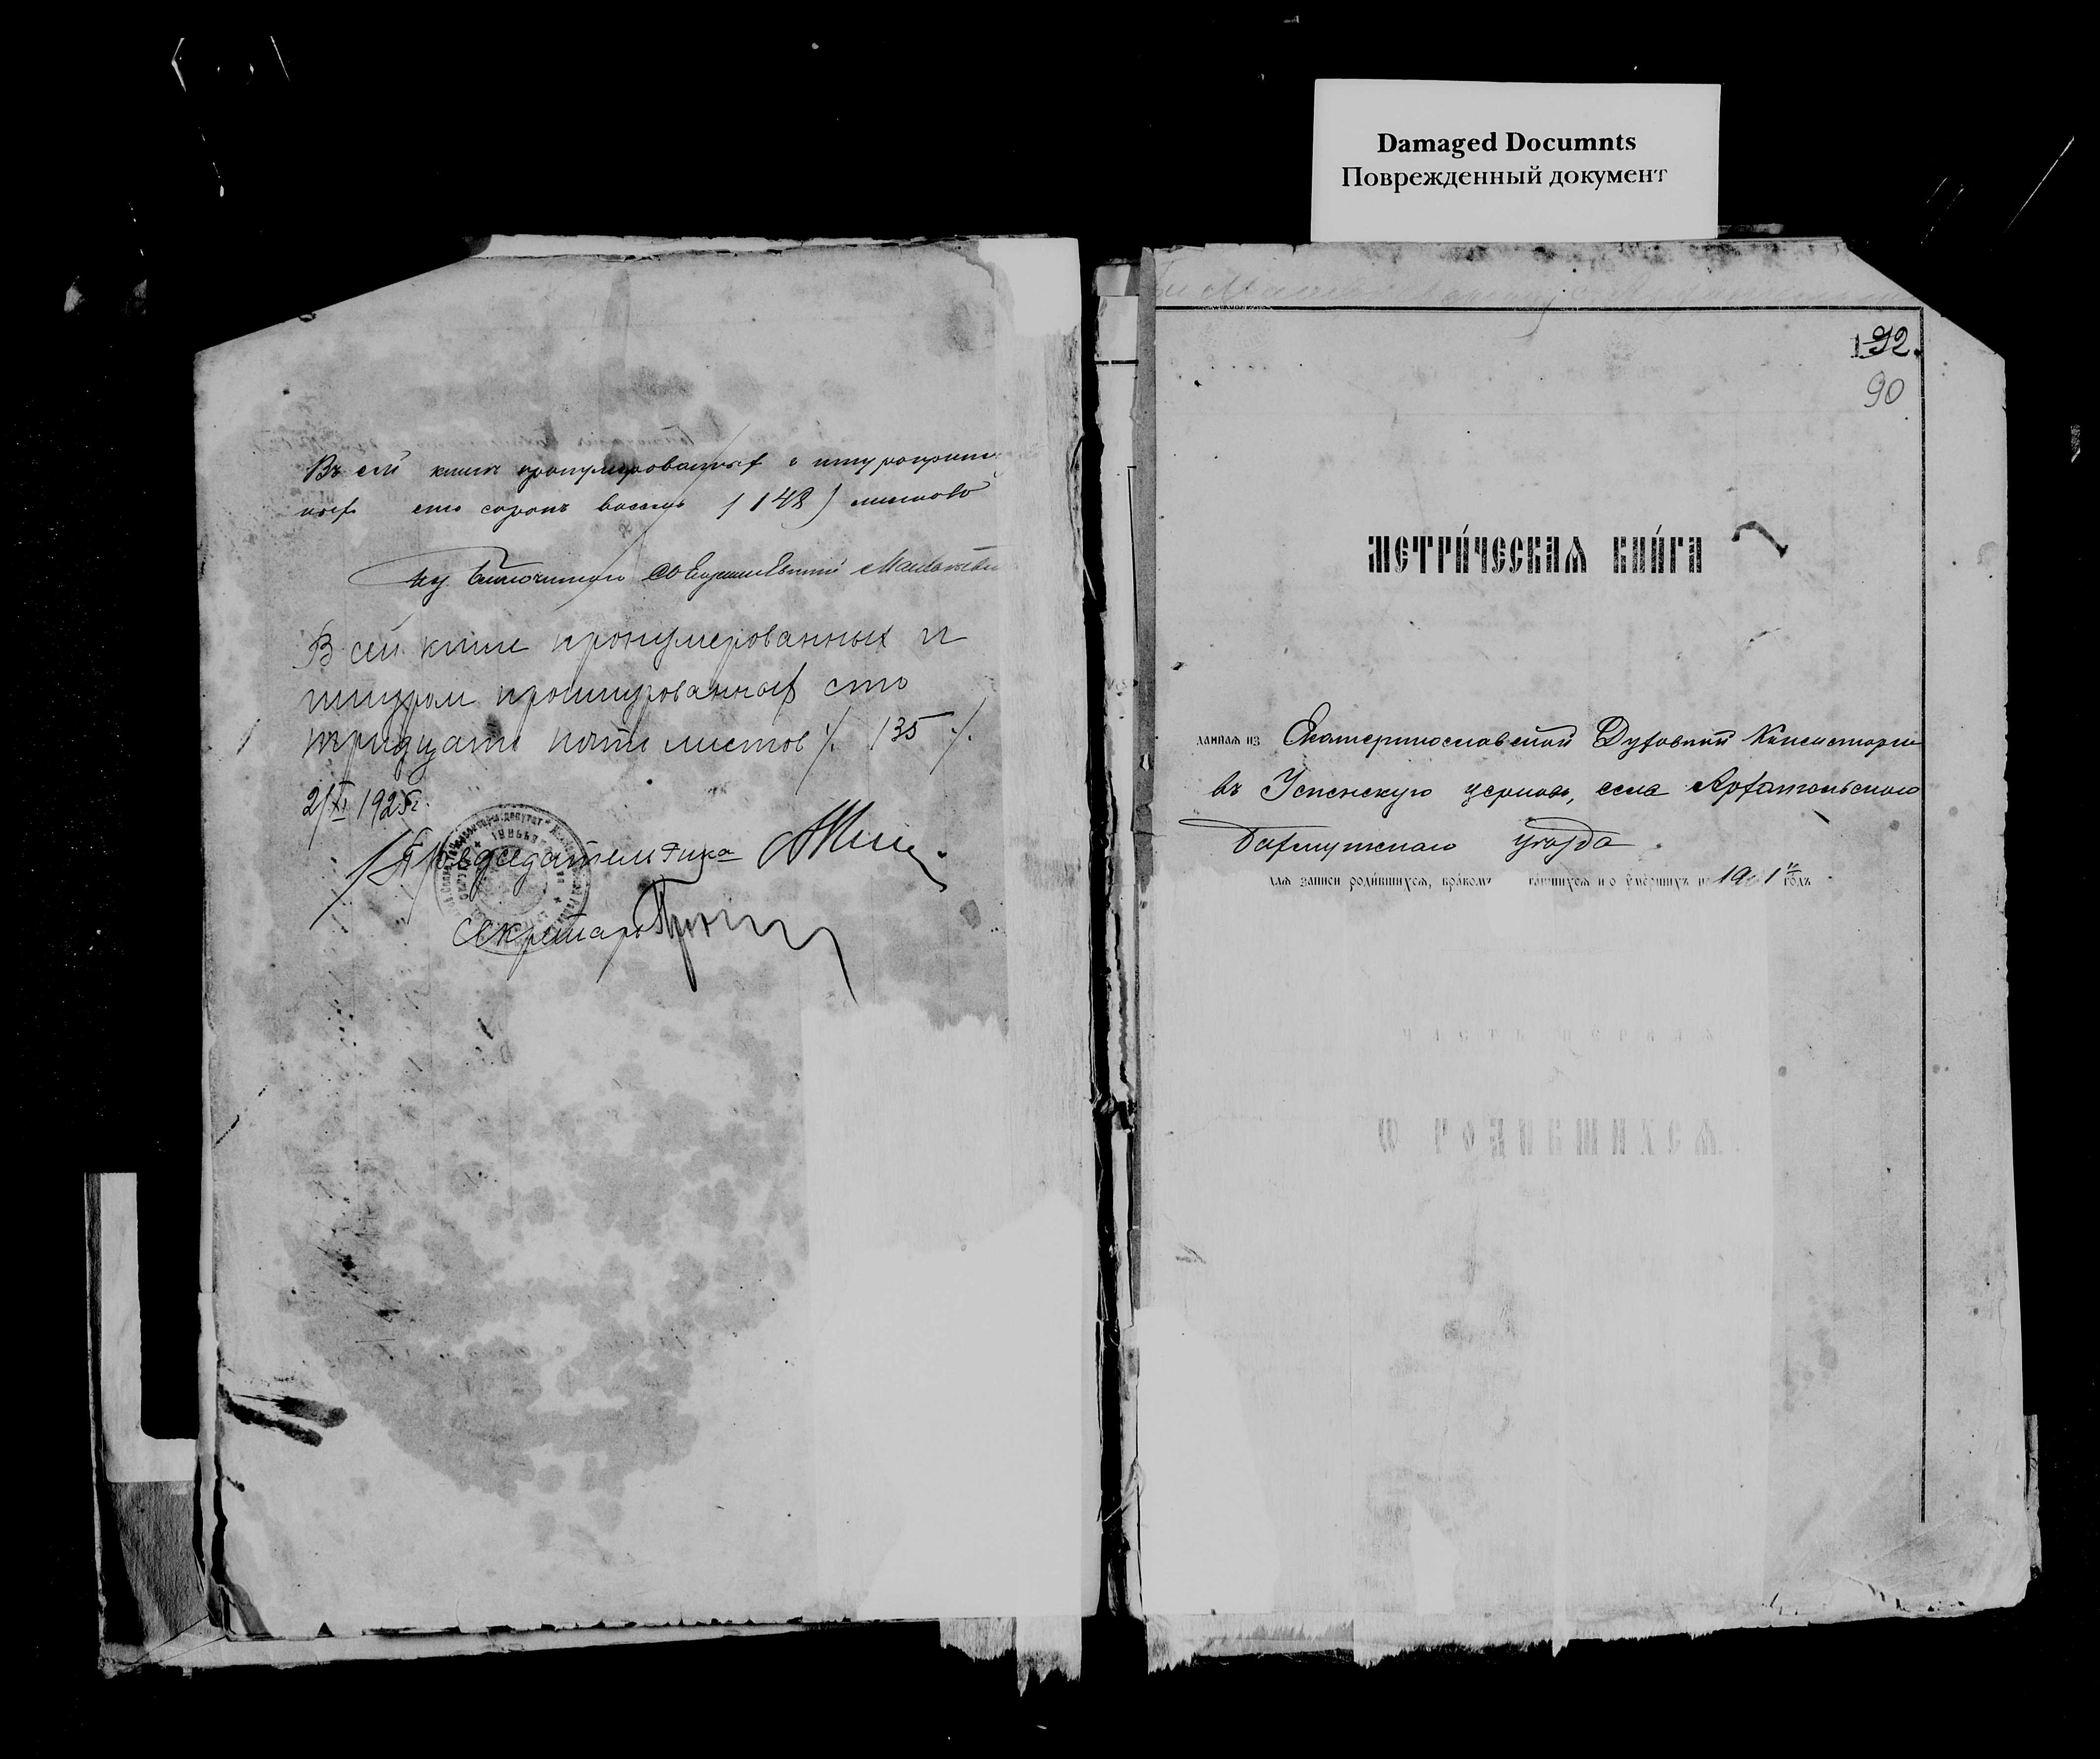 Damaged Documnts
Поврежденный документ
Въ сей книгѣ пронумерованныхъ и шнуропрошит
ныхъ сто сорокъ восемь (148) листовъ
Благочинный Священникъ
В сей книге пронумерованных и
шнуром прошнурованных сто
тридцать пять листов /. 135 ./.
2/XI 1925г.
Председатель
Секретарь
192.
90
МЕТРИ́ЧЕСКАѦ КНИ́ГА
даннаѧ из Екатеринославской Духовной Консисторіи
въ Успенскую церковь, села Архангельскаго
Бахмутскаго уѣзда
для записи роди́вшихсѧ, бра́комъ и о ᲂумершихъ на 1901й го́дъ
ЧАСТЬ ПЕРВАѦ
Ѡ РОДИВШИХСѦ.